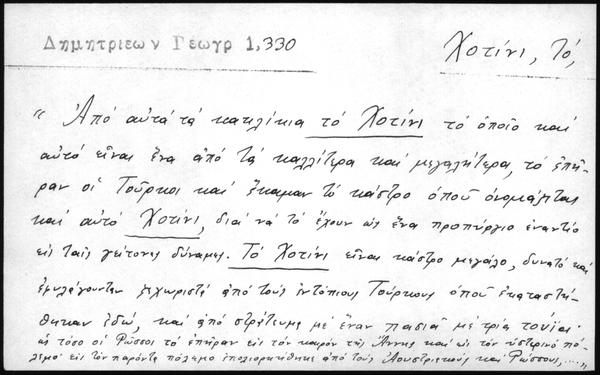 Δημητριεων Γεωγρ 1,330
Χοτίνι, Τό,
"Ἀπό αὐτά τά κατιλίκια τό Χοτίνι τό ὁποῖο καί
αὐτό εἶναι ἕνα ἀπό τά καλλίτερα καί μεγαλήτερα, τό ἐπῆ-
ραν οἱ Τοῦρκοι καί ἔκαμαν τό κάστρο ὁποῦ ὀνομάζεται
καί αὐτό Χοτίνι, διά νά τό ἔχουν ὡς ἕνα προπύργιο ἐναντίο
εἰς ταῖς γείτονες δύναμες. Τό Χοτίνι εἶναι κάστρο μεγάλο, δυνατό καί
ἐφυλάγουνταν ξεχωριστά ἀπό τούς ἐντόπιους Τούρκους ὁποῦ ἐκαταστή-
θηκαν ἐδώ, καί ἀπό στράτευμα μέ ἕναν πασιᾶ μέ τρία τουΐα·
ὡς τόσο οἱ Ρῶσσοι τό ἐπῆραν εἰς τόν καιρόν τῆς Ἄννης καί εἰς τόν ὕστερινό πό-
λεμο· εἰς τόν παρόντα πόλεμο ἐπολιορκήθηκε ἀπό τούς Ἀουστριακούς καί Ρώσσους, ....."